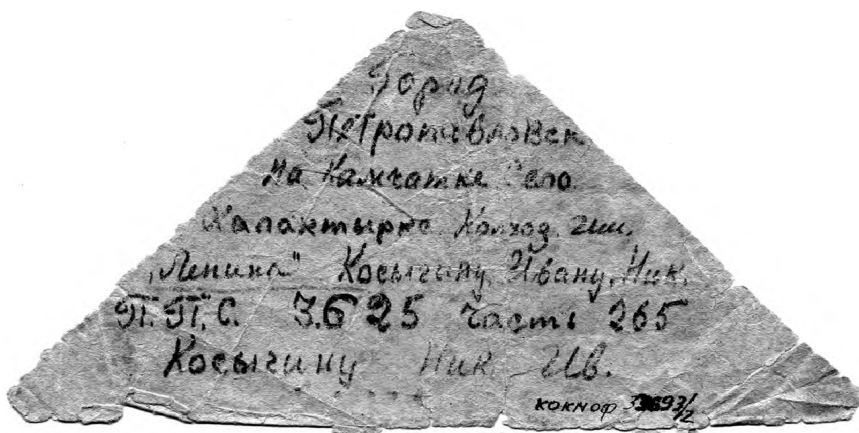 Город
Петропавловск
На Камчатке Село
Халактырка Колхоз. им.
"Ленина" Косыгину, Ивану, Ник.
П. П. С. 3625 Часть 265
Косыгину Ник. Ив.
КОКМОФ